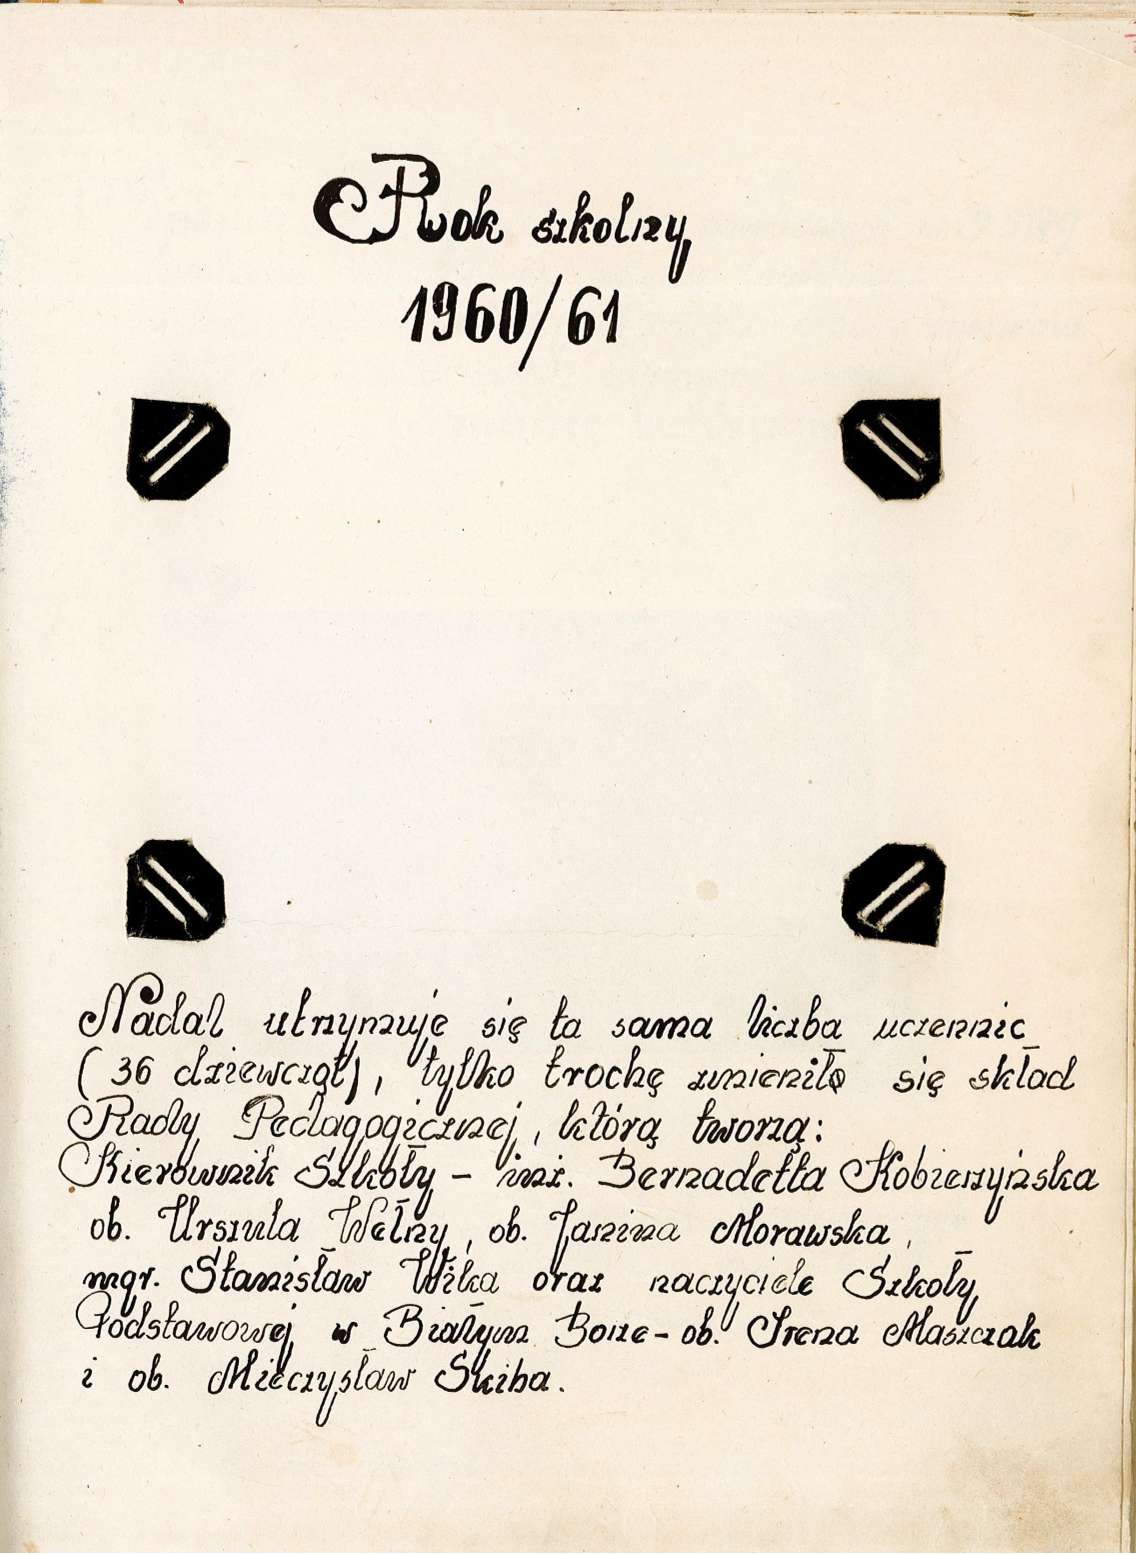 Rok szkolny
1960/61
Nadal utrzymuje się ta sama liczba uczennic
(36 dziewcząt), tylko trochę zmienił się skład
Rady Pedagogicznej, którą tworzą:
Kierownik Szkoły - inż. Bernadetta Kobierzyńska
ob. Urszula Wełny, ob. Janina Morawska,
mgr. Stanisław Wilka oraz naczyciele Szkoły
Podstawowej w Białym Borze - ob. Irena Maszczak
i ob. Mieczysław Skiba.